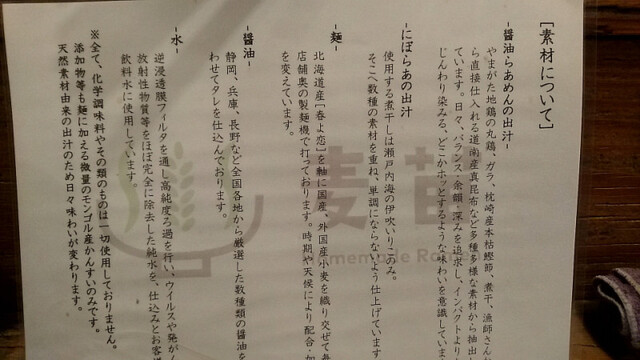 [素材について]
-醤油らあめんの出汁-
やまがた地鶏の丸鶏、ガラ、枕崎産本枯鰹節、煮干、漁師さんか
ら直接仕入れる道南産真昆布など多種多様な素材から抽出し
ています。日々、バランス・余韻・深みを追求し、インパクトより
じんわり染みる、どこかホッとするような味わいを意識していま
-にぼらあの出汁-
使用する煮干しは瀬戸内海の伊吹いりこのみ。
そこへ数種の素材を重ね、単調にならないよう仕上げています
-麺-
北海道産[春よ恋]を軸に国産、外国産小麦を織り交ぜて
店舗奥の製麺機で打っております。時期や天候により配合・加
を変えています。
-醤油-
静岡、兵庫、長野など全国各地から厳選した数種類の醤油を
わせてタレを仕込んでおります。
-水-
逆浸透膜フィルタを通し高純度ろ過を行い、ウイルスや発が
放射性物質等をほぼ完全に除去した純水を、仕込みとお客
飲料水に使用しています。
※全て、化学調味料やその類のものは一切使用しておりません。
添加物等も麺に加える微量のモンゴル産かんすいのみです。
天然素材由来の出汁のため日々味わいが変わります。
麦苗
Homemade Ra